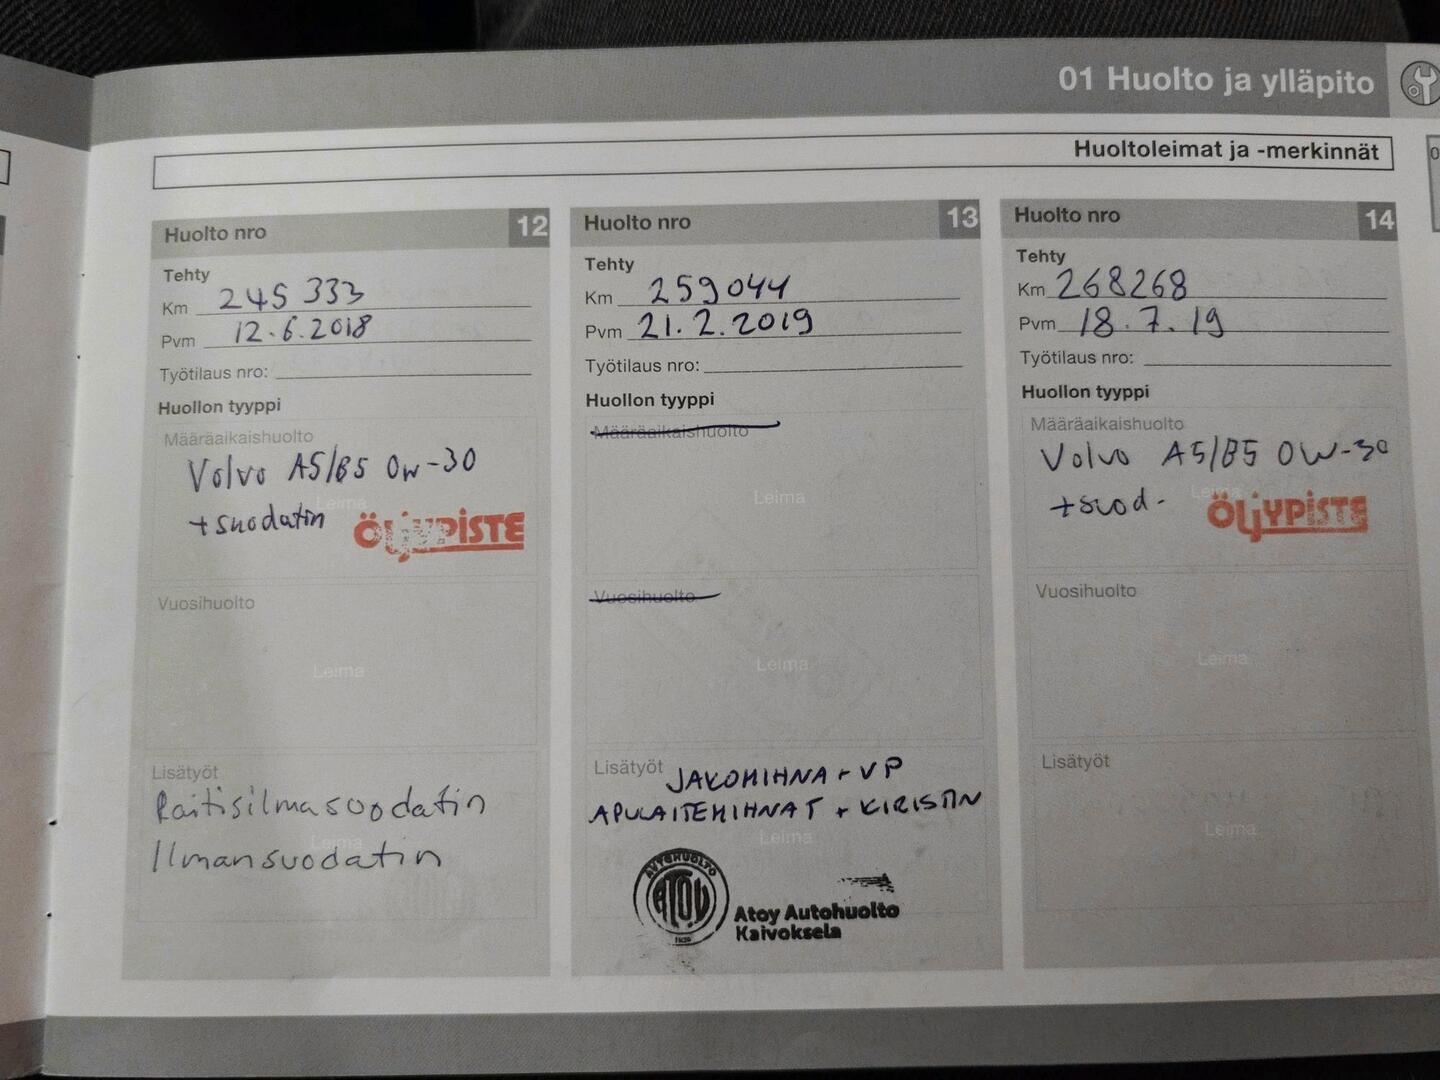 01 Huolto ja ylläpito
Huoltoleimat ja -merkinnät
Huolto nro 12
Tehty
Km 245 333
Pvm 12.6.2018
Työtilaus nro:
Huollon tyyppi
Määräaikaishuolto
Volvo A5/B5 0w-30
Leima
+suodatin ÖLJYPISTE
Vuosihuolto
Leima
Lisätyöt
Raitisilmasuodatin
Leima
Ilmansuodatin
Huolto nro 13
Tehty
Km 259044
Pvm 21.2.2019
Työtilaus nro:
Huollon tyyppi
Määräaikaishuolto
Leima
Vuosihuolto
Leima
Lisätyöt JAKOHIHNA + VP
APULAITEHIHNAT + KIRISTIN
Leima
AUTOHUOLTO
ATOY
Atoy Autohuolto
Kaivoksela
Huolto nro 14
Tehty
Km 268268
Pvm 18.7.19
Työtilaus nro:
Huollon tyyppi
Määräaikaishuolto
Volvo A5/B5 0W-30
Leima
+suod. ÖLJYPISTE
Vuosihuolto
Leima
Lisätyöt
Leima